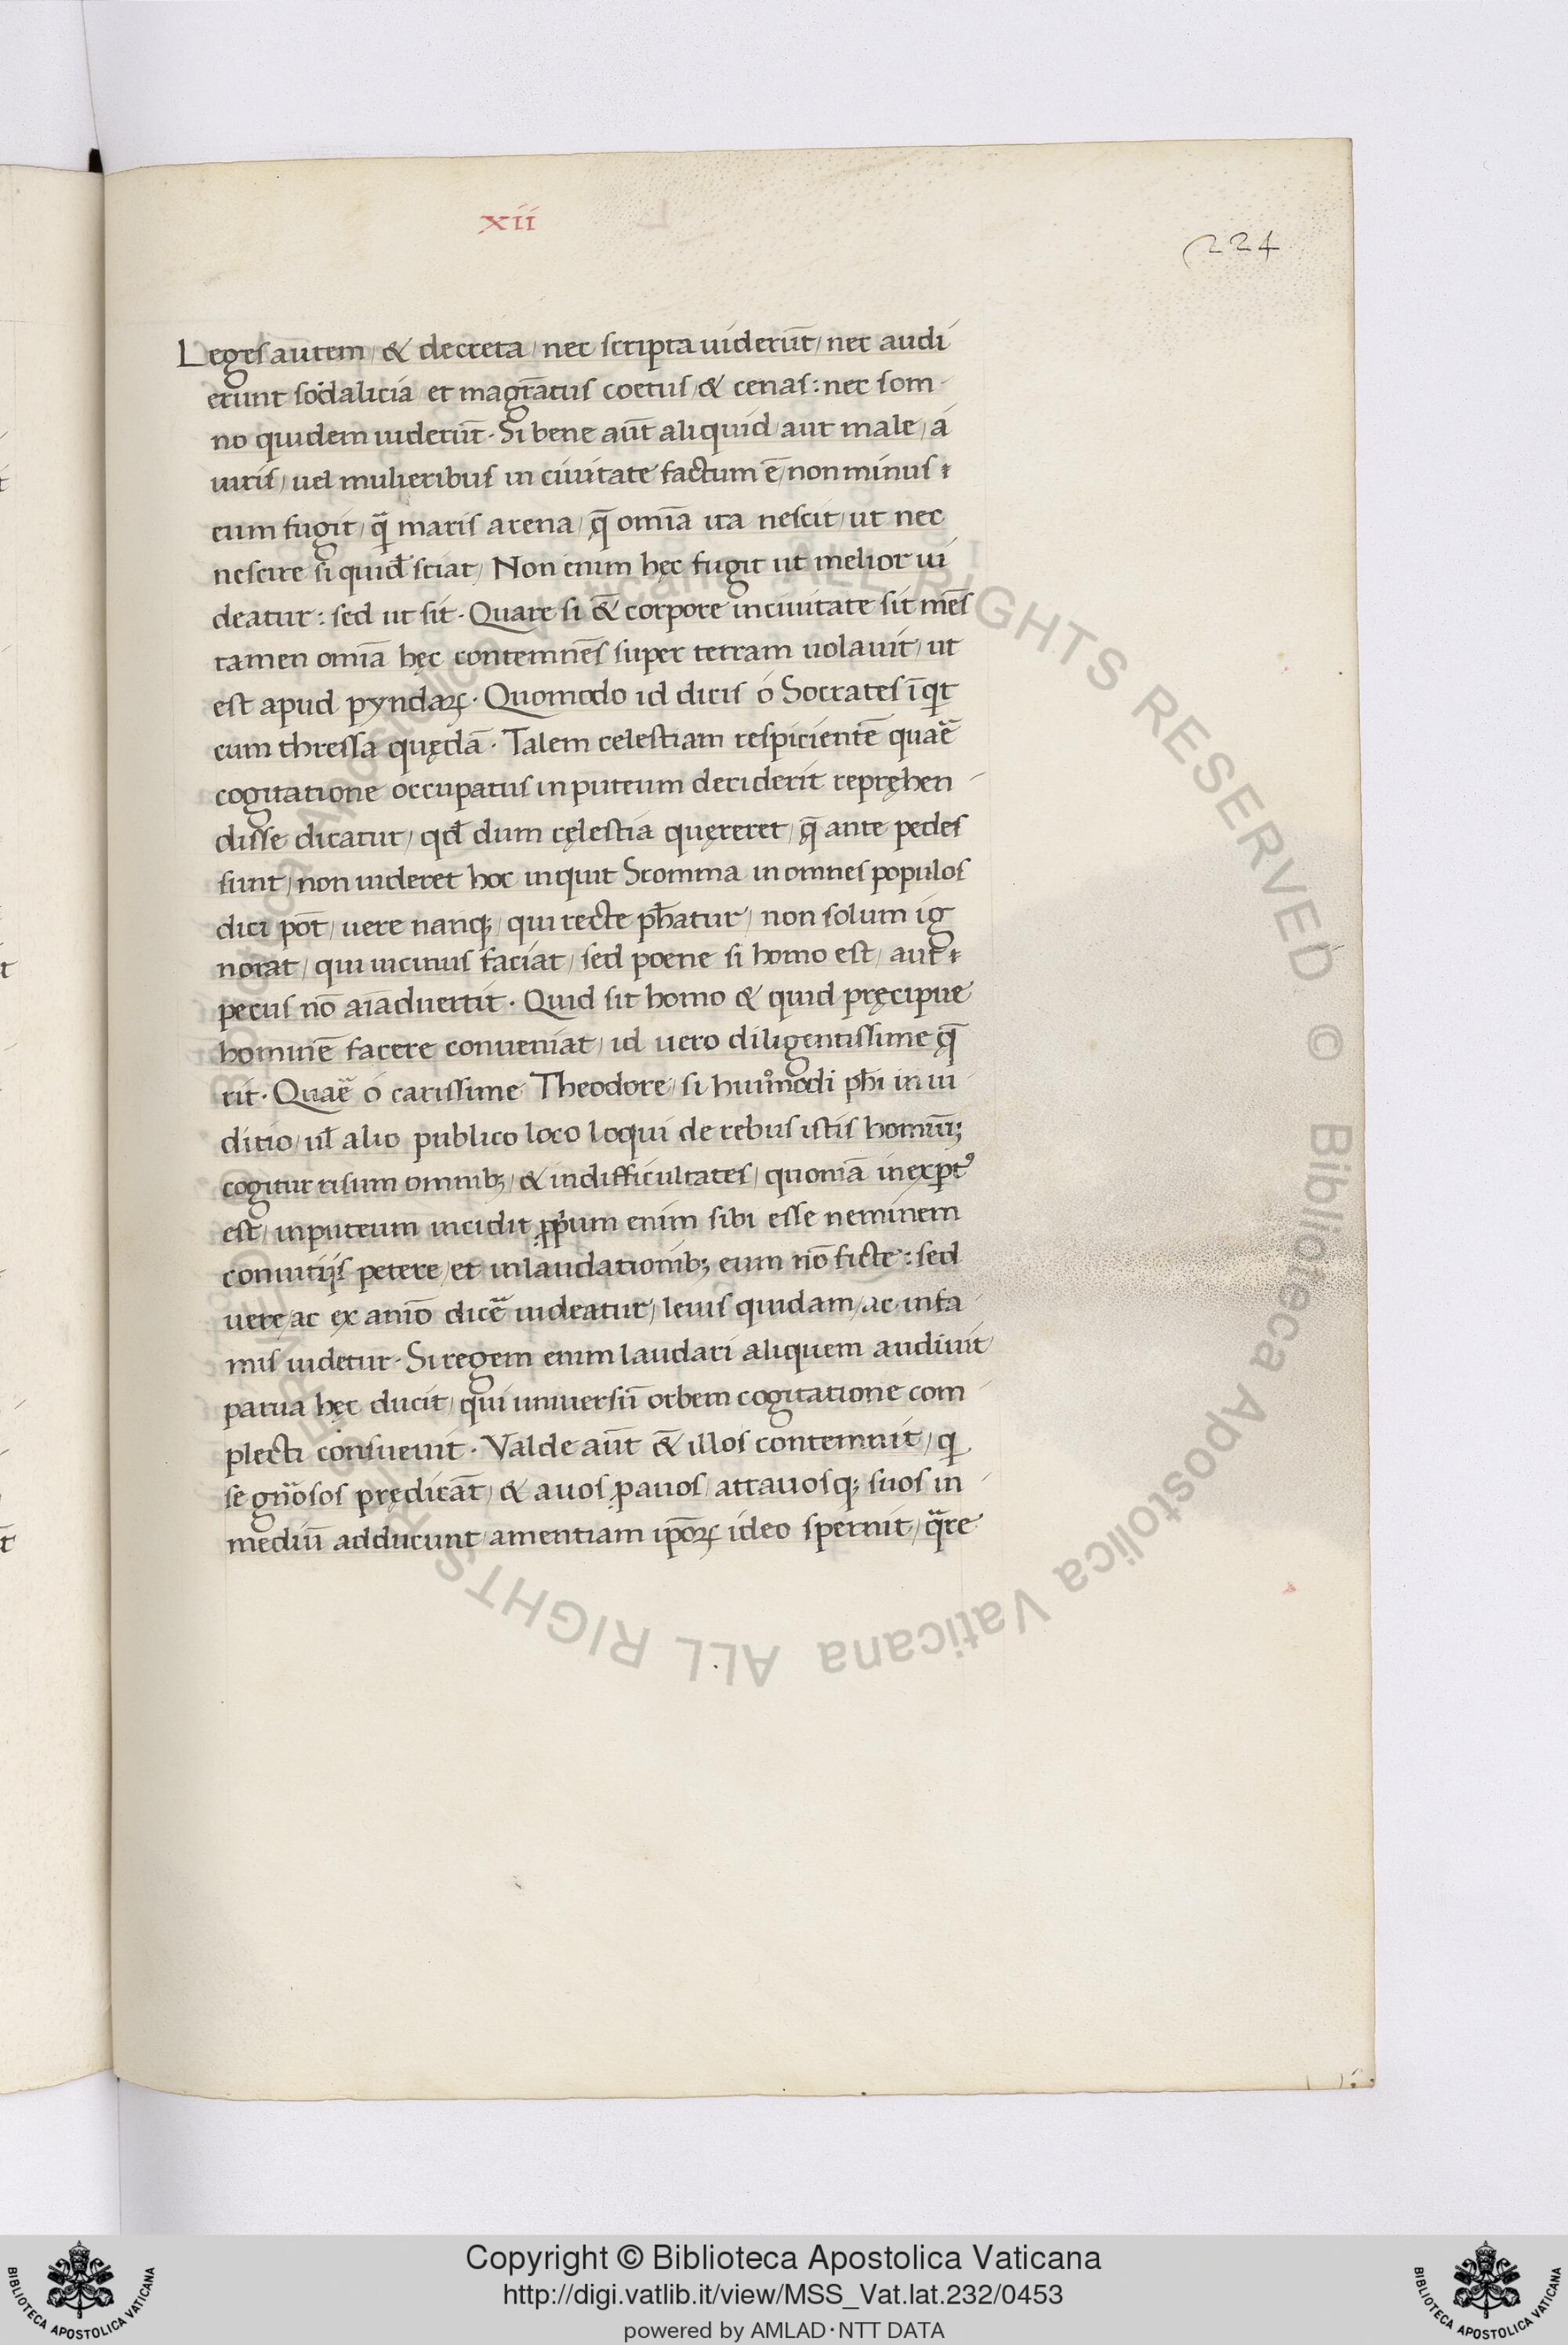 xii
224
Leges autem / & decreta / nec scripta uiderūt / nec audi
erunt sodalicia et magr̄atus coetus / & cenas : nec som-
no quidem uiderūt · Si bene aūt aliquid / aut male / a
uiris / uel mulieribus in ciuitate factum ē / non minus
eum fugit / q̄ maris arena / q̄ omīa ita nescit / ut nec
nescire si quid̄ sciat / Non enim hęc fugit ut melior ui
deatur : sed ut sit · Quare si & corpore in ciuitate sit mēs
tamen omīa hęc contemnēs super terram uolauit / ut
est apud pyndaꝝ · Quomodo id dicis o Socrates īqt
cum thressa quędā · Talem celestiam respicientē quaē
cogitatione occupatus in puteum deciderit repręhen-
disse dicatur / qd̄ dum cęlestia quęreret / q̄ ante pedes
sunt / non uideret hoc inquit Scomma in omnes populos
dici pōt / uere nanq; / qui recte ph̄atur / non solum ig
norat / qui uicinus faciat / sed poene si homo est / aut
pecus nō aīaduertit · Quid sit homo & quid pręcipue
hominē facere conueniat / id uero diligentissime q̄
rit · Quaē o carissime Theodore / si huiᵒmodi ph̄i in iu-
ditio / ul̄ alio publico loco loqui de rebus istis homīū;
cogitur risum omnib; / & indifficultates / quoniā inexpt᾽
est / in puteum incidit ꝓpium enim sibi esse neminem
conuitijs petere / et in laudationib; eum nō ficte : sed
uere / ac ex anīo dicē uideatur / leuis quidam / ac infa
mis uidetur · Si regem enim laudari aliquem audiuit
parua hęc ducit / qui uniuersū orbem cogitatione com-
plecti consueuit · Valde aūt & illos contemnit / q
se gn̄osos prędicāt / & auos ꝓauos / attauosq; suos in-
mediū adducunt / amentiam ip̄oꝝ ideo spernit / q̄re
Copyright © Biblioteca Apostolica Vaticana
http://digi.vatlib.it/view/MSS_Vat.lat.232/0453
powered by AMLAD·NTT DATA
BIBLIOTECA APOSTOLICA VATICANA
BIBLIOTECA APOSTOLICA VATICANA
© Biblioteca Apostolica Vaticana ALL RIGHTS RESERVED